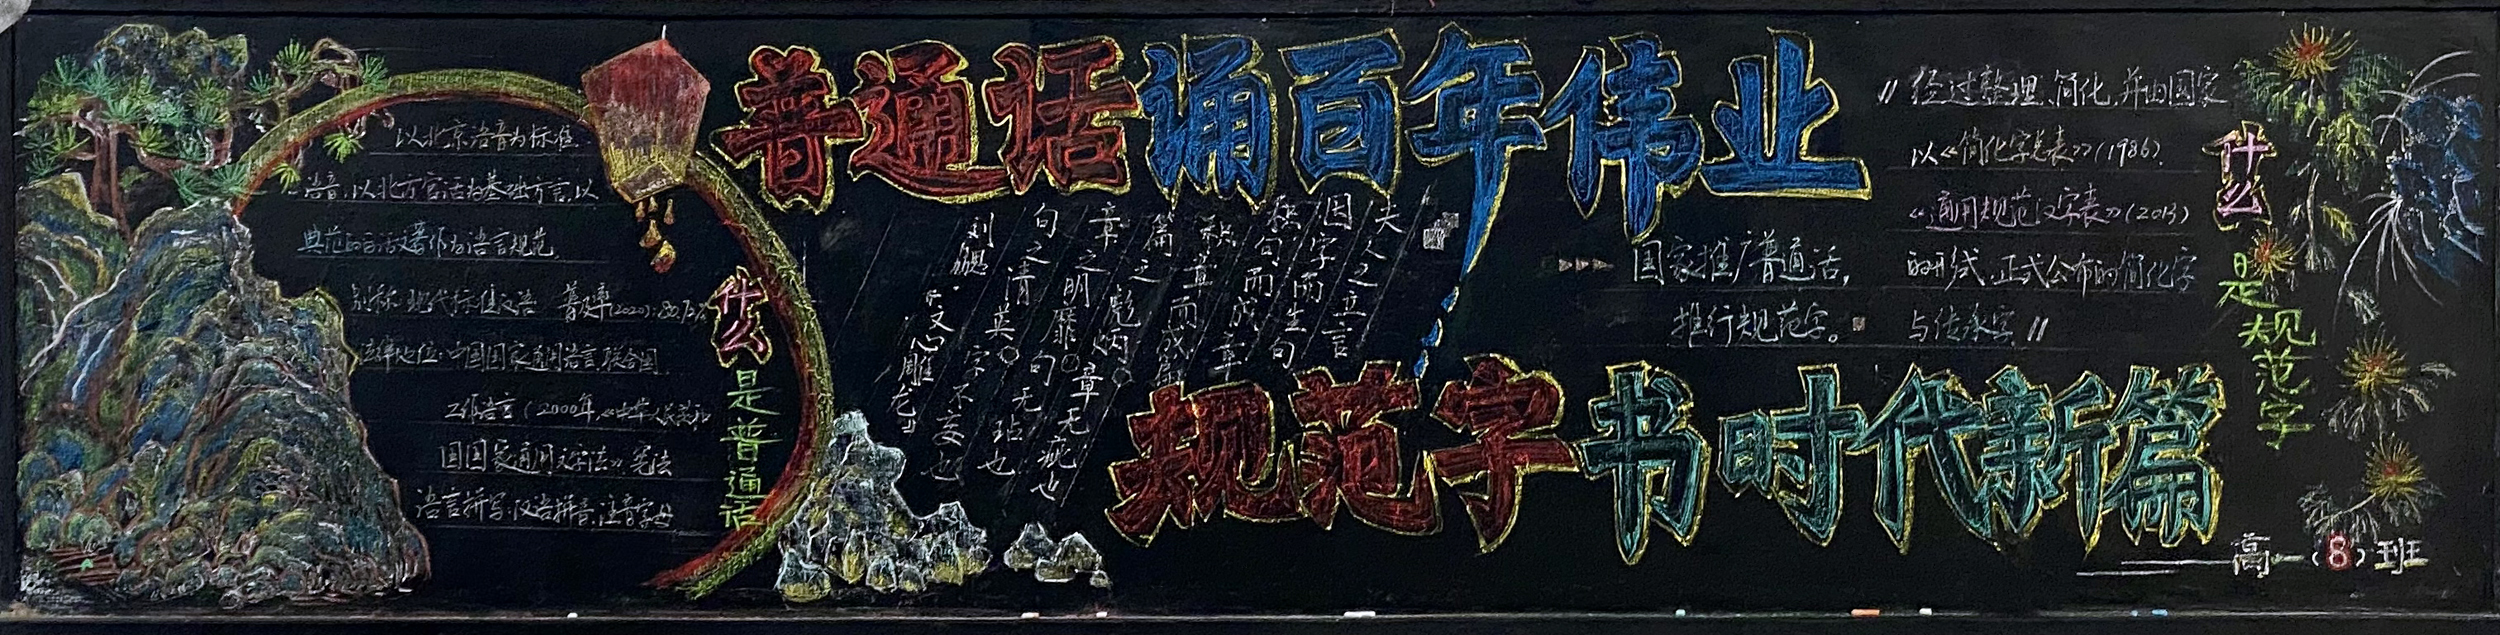 普通话诵百年伟业
规范字书时代新篇
以北京语音为标准
语音，以北方官话为基础方言，以
典范的白话文著作为语言规范。
别称:现代标准汉语 普及率(2020):80.72%
法律地位:中国国家通用语言 联合国
工作语言(2000年《中华人民共和
国国家通用文字法》宪法
语言拼写:汉语拼音,注音字母
什么是普通话
夫人之立言
因字而生句
积句而成章
积章而成篇
篇之彪炳。章无疵也
章之明靡。句无玷也
句之清英。字不妄也
刘勰·《文心雕龙》
国家推广普通话，
推行规范字。
“经过整理、简化,并由国家
以《简化字总表》(1986)
《通用规范汉字表》(2013)
的形式,正式公布的简化字
与传承字”
什么是规范字
高一(8)班